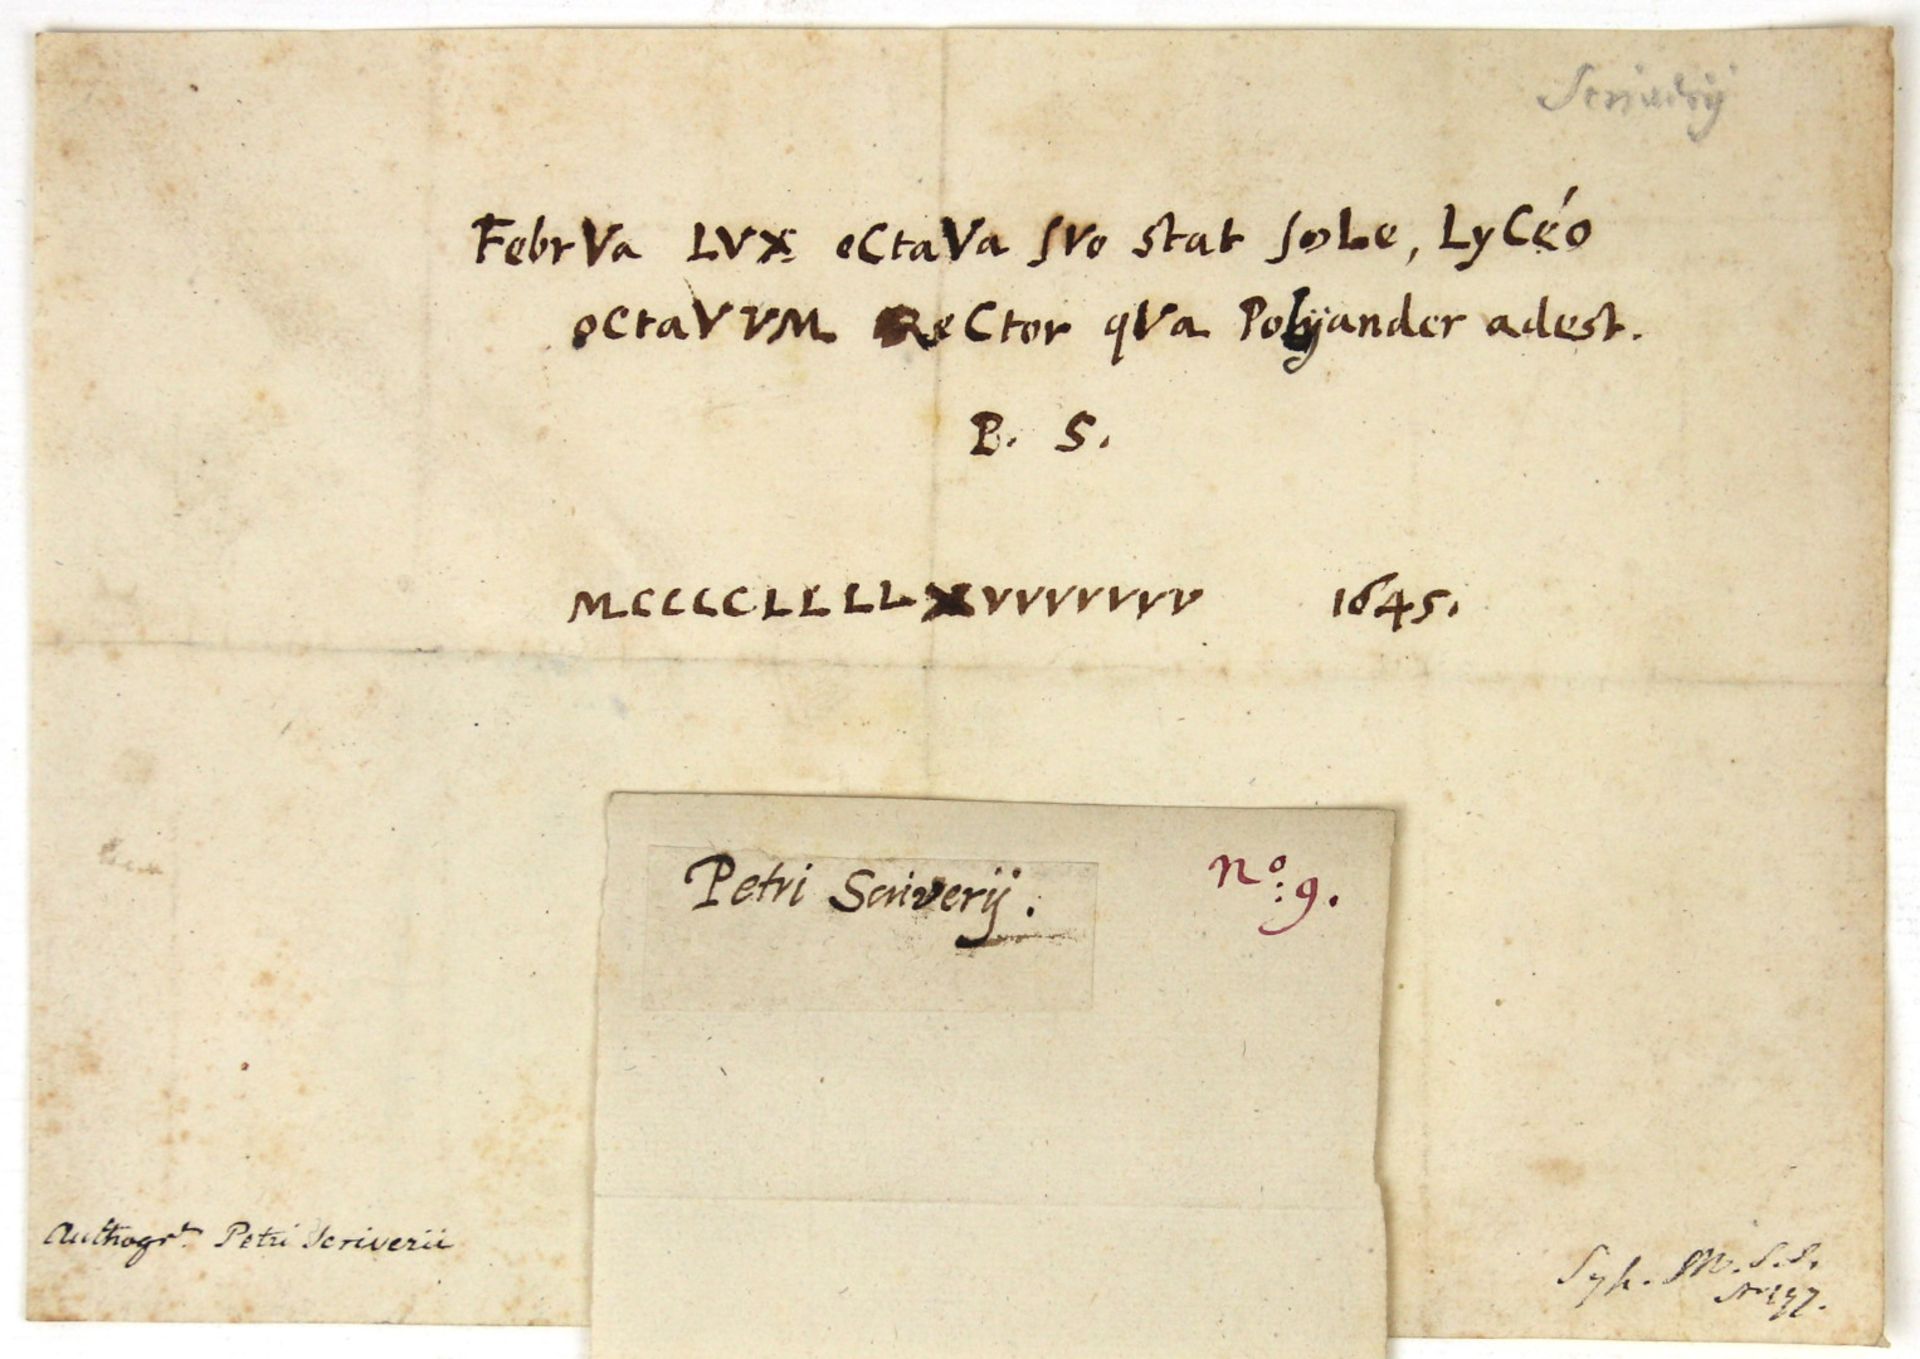 Scriverij
FebrVa LVX oCtaVa sVo stat soLe, LyCéo
oCtaVVM ReCtor qVa Polyander adest.
P. S.
MCCCCLLLLXVVVVVVV 1645.
Petri Scriverij.
No: 9.
Authogr. Petri Scriverii
Syh. M.S.S.
No 197.